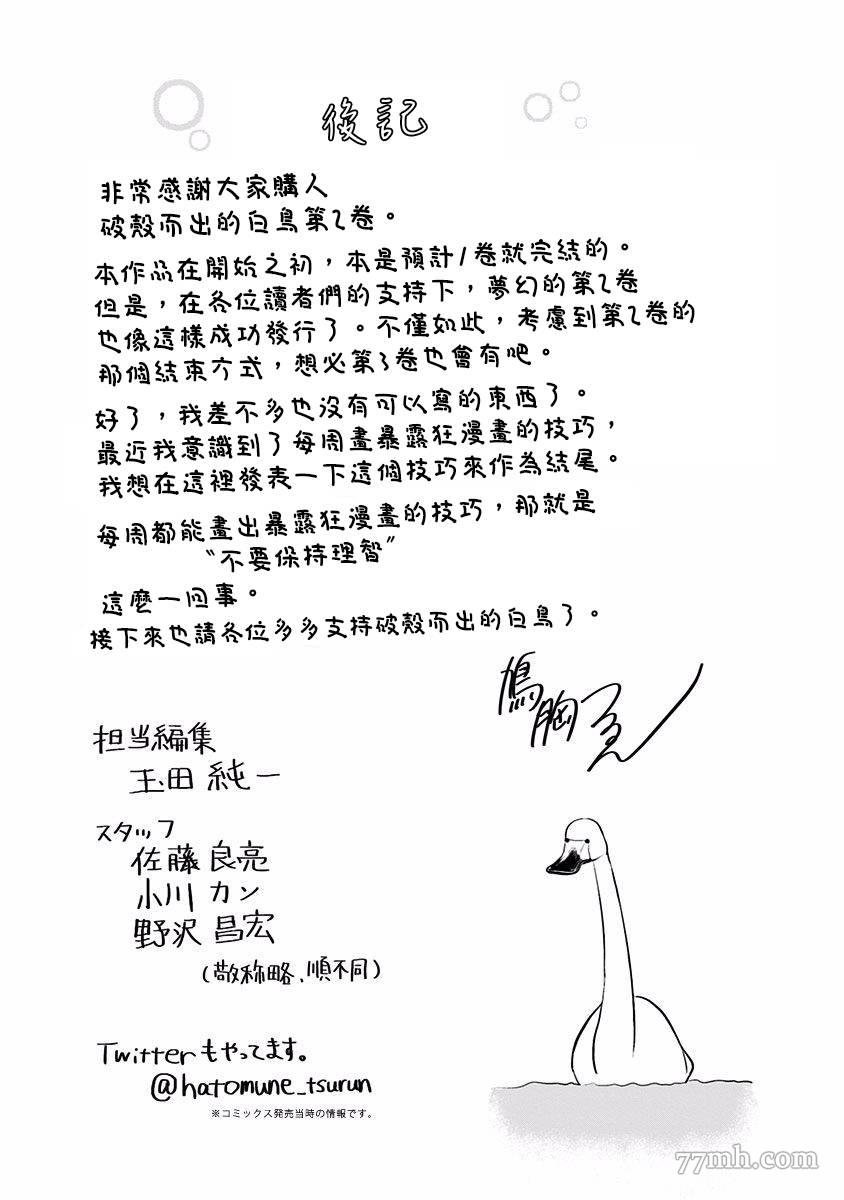 後記
非常感謝大家購入
破殼而出的白鳥第2卷。
本作品在開始之初，本是預計1卷就完結的。
但是，在各位讀者們的支持下，夢幻的第2卷
也像這樣成功發行了。不僅如此，考慮到第2卷的
那個結束方式，想必第3卷也會有吧。
好了，我差不多也沒有可以寫的東西了。
最近我意識到了每周畫暴露狂漫畫的技巧，
我想在這裡發表一下這個技巧來作為結尾。
每周都能畫出暴露狂漫畫的技巧，那就是
“不要保持理智”
這麼一回事。
接下來也請各位多多支持破殼而出的白鳥了。
鳩胸つるん
担当編集
玉田 純一
スタッフ
佐藤 良亮
小川 カン
野沢 昌宏
(敬称略、順不同)
Twitterもやってます。
@hatomune_tsurun
※コミックス発売当時の情報です。
77mh.com